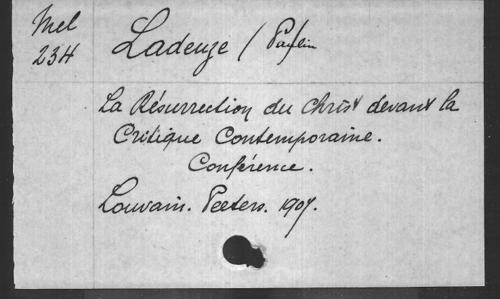 Mel
234
Ladeuze / Paulin
La Résurrection du Christ devant la
Critique Contemporaine.
Conférence.
Louvain. Peeters. 1907.